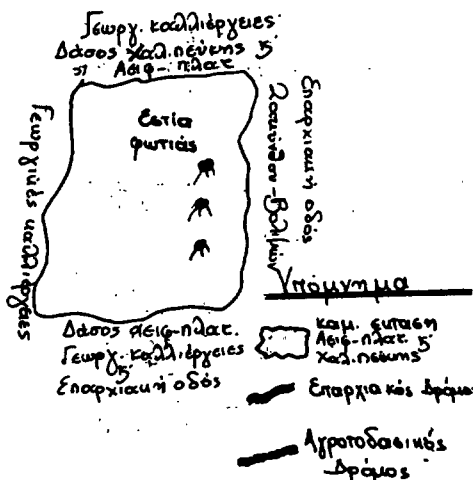 Γεωργ. καλλιέργειες
Δάσος Χαλ. πεύκης ξ
Αειφ-πλατ
Γεωργικές καλλιέργειες
Εστία
φωτιάς
Επαρχιακή οδός
Ζακύνθου-Βολιμών
Δάσος αειφ-πλατ.
Γεωργ. καλλιέργειες
ξ
Επαρχιακή οδός
Υπόμνημα
καμ. έκταση
Αειφ-πλατ ξ
Χαλ. πεύκης
Επαρχιακός Δρόμο
Αγροτοδασικός
Δρόμος